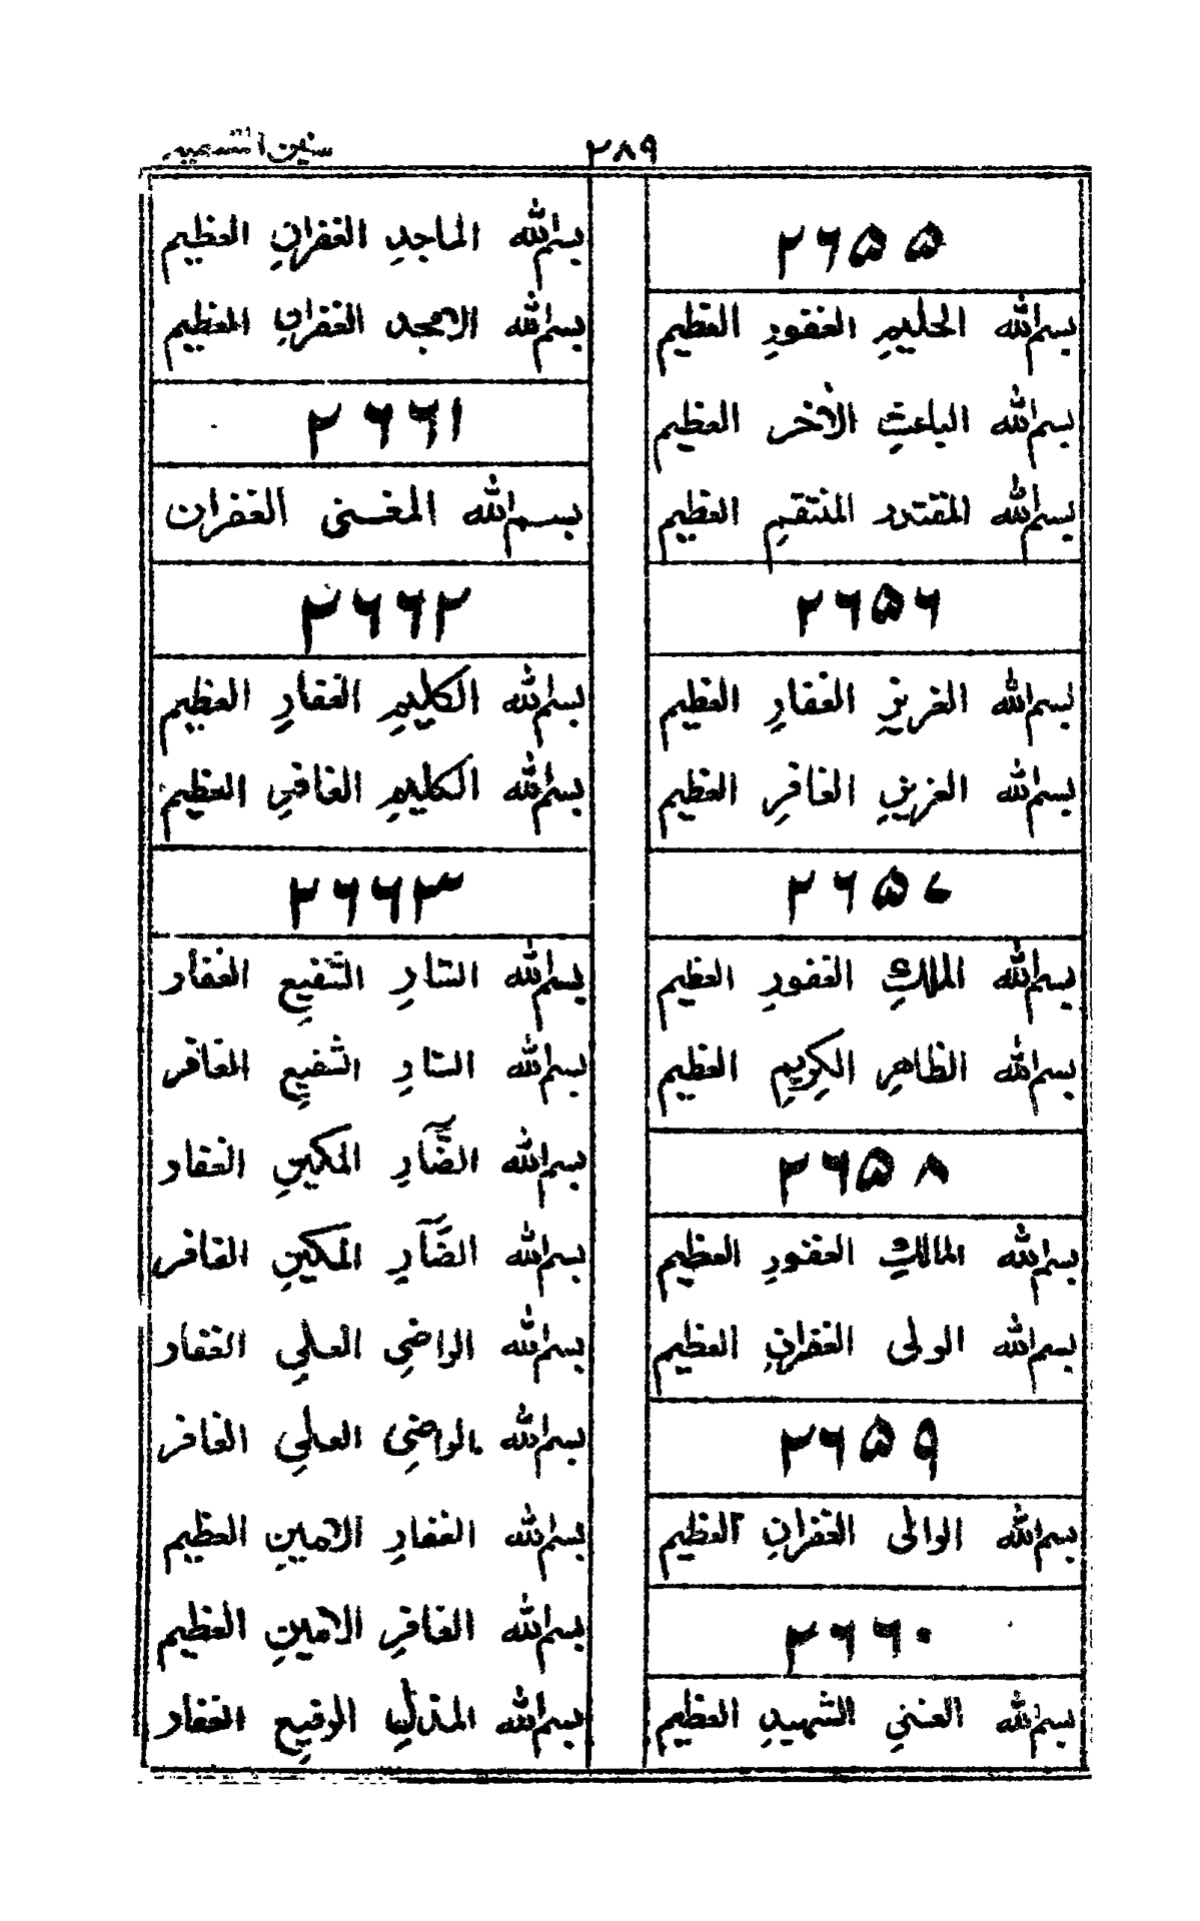 ۲۸۹
سنین التسمیه
۲۶۵۵
بسم الله الحلیمِ الغفورِ العظیم
بسم الله الباعثِ الآخر العظیم
بسم الله المقتدر المنتقمِ العظیم
۲۶۵۶
بسم الله العزیزِ الغفارِ العظیم
بسم الله العزیزِ الغافرِ العظیم
۲۶۵۷
بسم الله الملکِ الغفورِ العظیم
بسم الله الظاهرِ الکریمِ العظیم
۲۶۵۸
بسم الله المالکِ الغفورِ العظیم
بسم الله الولی الغفرانِ العظیم
۲۶۵۹
بسم الله الوالی الغفرانِ العظیم
۲۶۶۰
بسم الله الغنیِ الشهیدِ العظیم
بسم الله الماجدِ الغفرانِ العظیم
بسم الله الامجد الغفرانِ العظیم
۲۶۶۱
بسم الله المغنی الغفران
۲۶۶۲
بسم الله الکلیمِ الغفارِ العظیم
بسم الله الکلیمِ الغافرِ العظیم
۲۶۶۳
بسم الله الستارِ الشفیعِ الغفار
بسم الله الستارِ الشفیعِ الغافر
بسم الله الضَّآرِ المکینِ الغفار
بسم الله الضَّآرِ المکینِ الغافر
بسم الله الواضیِ العلیِ الغفار
بسم الله الواضیِ العلیِ الغافر
بسم الله الغفارِ الامینِ العظیم
بسم الله الغافرِ الامینِ العظیم
بسم الله المذلِ الوقیعِ الغفار